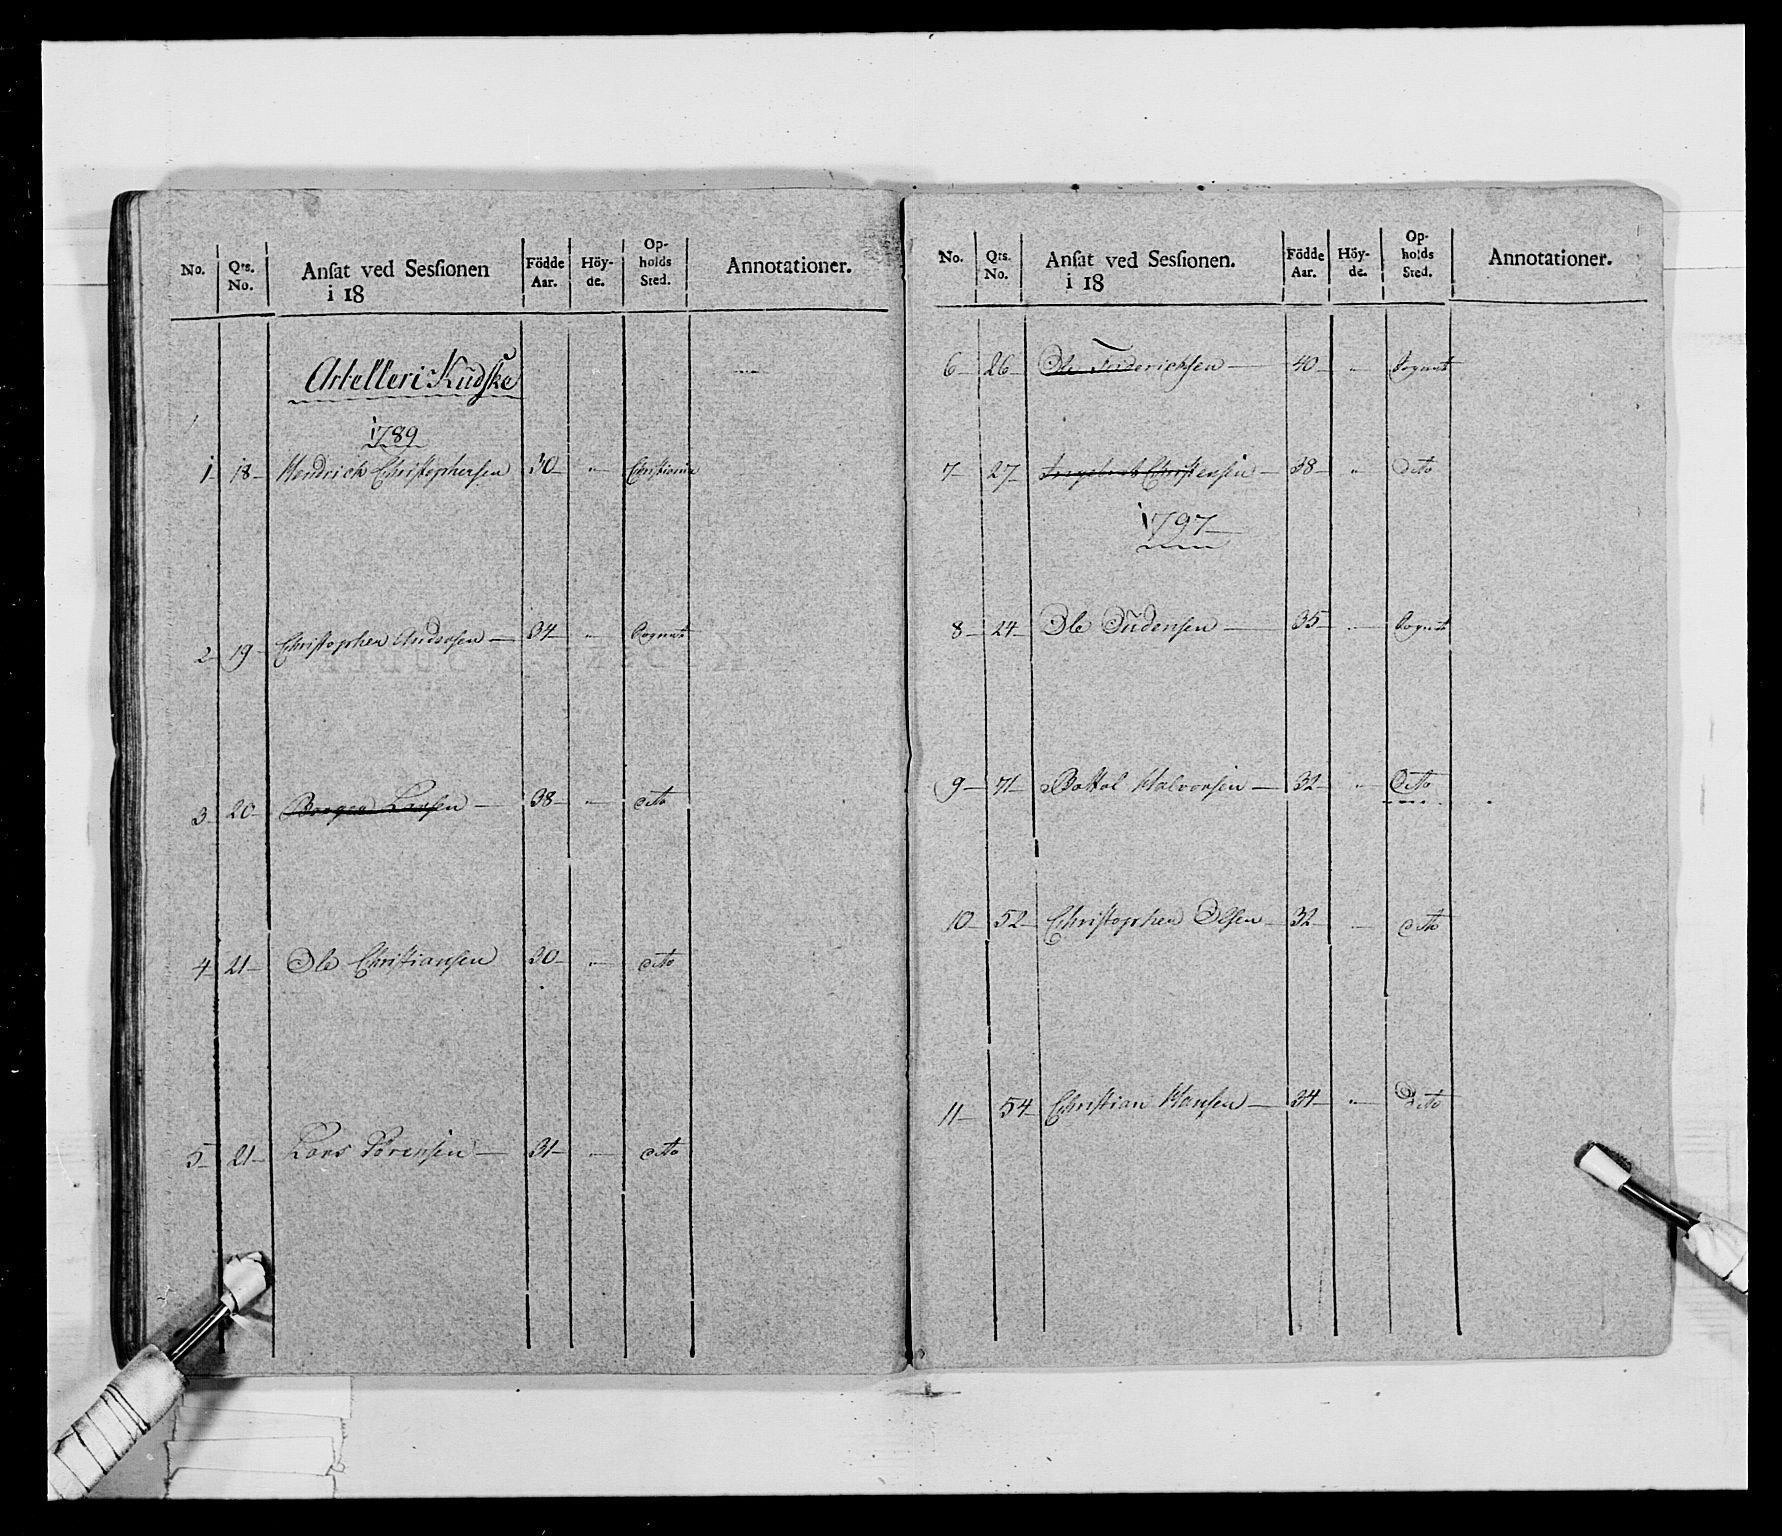 No. Qts. No. Ansat ved Sessionen i 18 Födde Aar. Höy-de. Op-holds Sted. Annotationer.
Artelleri Kudske
1789
1 18 Hendrich Christophersen 30 " Christiania
2 19 Christopher Andersen 34 " Sognet
3 20 Larsen 38 " dito
4 21 Ole Christiansen 30 " dito
5 21 Lars Sörensen 31 " dito
No. Qts. No. Ansat ved Sessionen. i 18 Födde Aar. Höy-de. Op-holds Sted. Annotationer.
6 26 Ole Friderichsen 40 " Sognet
7 27 Christensen 38 " dito
1797
8 24 Ole 35 " Sognet
9 71 Halvorsen 32 " Dito
10 52 Christopher Olsen 32 " dito
11 54 Christian Hansen 34 " Dito